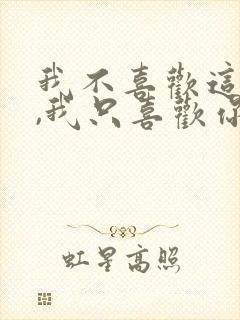 我不喜歡這
,我只喜歡你
虹星高照